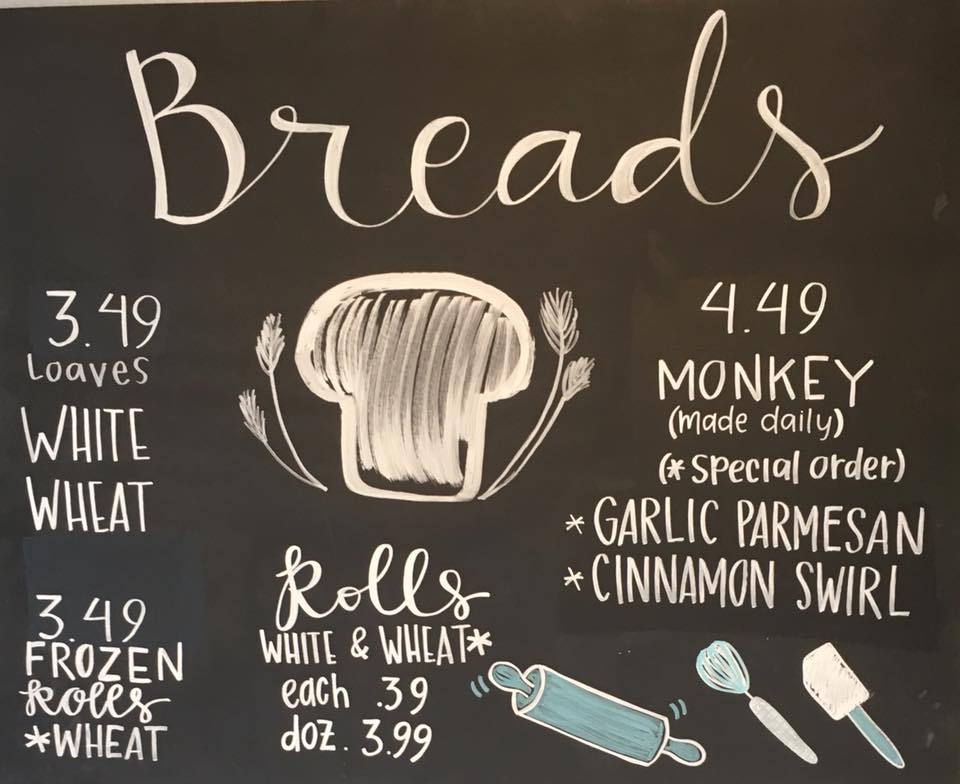 Breads
3.49
Loaves
WHITE
WHEAT
3.49
FROZEN
Rolls
*WHEAT
Rolls
WHITE & WHEAT*
each .39
doz. 3.99
4.49
MONKEY
(made daily)
(*special order)
*GARLIC PARMESAN
*CINNAMON SWIRL